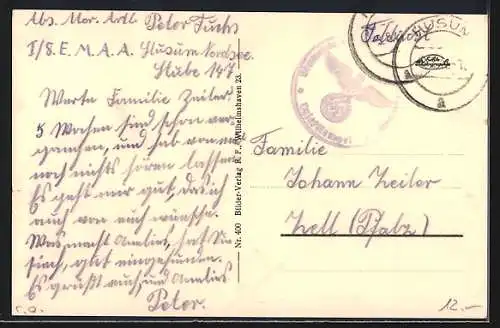 Abs. Mar. Artl. Peter Fuchs
I/8. E. M. A. A. Husum Nordsee
Stube 147
Werte Familie Zeiler
5 Wochen sind schon ver-
gangen, und hab von mir
noch nichts hören lassen
Es geht mir gut, das ich
auch von euch wünsche.
Was macht Amelies, hat Sie
sich gut eingefunden.
Es grüßt euch und Amelies
Peter.
Nr. 400 Bilder-Verlag R. F., Wilhelmshaven 23.
Feldpost
HUSUM
a
a
Familie
Johann Zeiler
Zell (Pfalz)
12.-